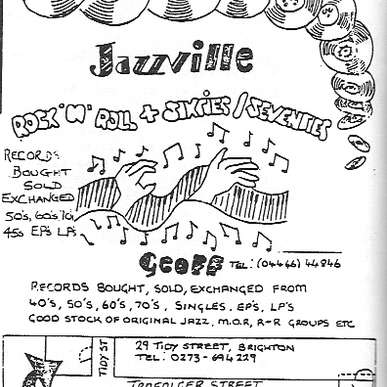 Jazzville
ROCK 'N' ROLL + SIXTIES / SEVENTIES
RECORDS
BOUGHT
SOLD
EXCHANGED
50's, 60's 70's,
45s EP's LP's
GEOFF TEL: (04446) 44846
RECORDS BOUGHT, SOLD, EXCHANGED FROM
40'S, 50'S, 60'S, 70'S, SINGLES. EP'S, LP'S
GOOD STOCK OF ORIGINAL JAZZ, M.O.R, R-R GROUPS ETC
TIDY ST
29 TIDY STREET, BRIGHTON
TEL: 0273-694229
TRAFALGER STREET